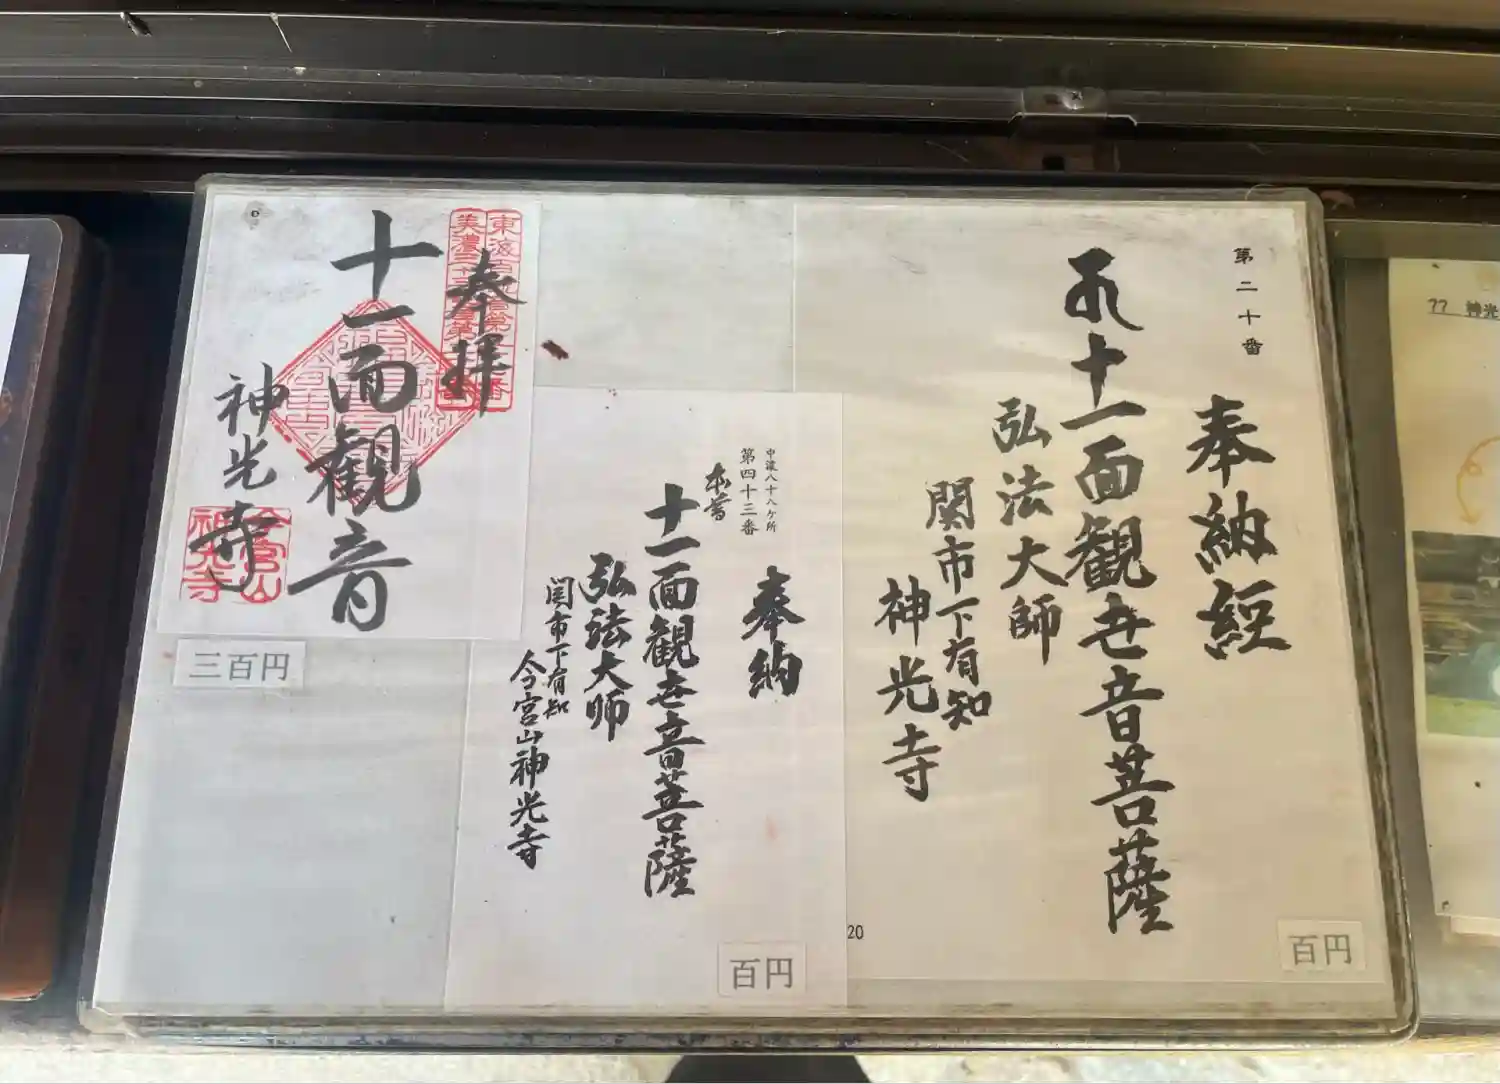 第二十番
奉納経
十一面観世音菩薩
弘法大師
関市下有知
神光寺
百円
20
中濃八十八ヶ所
第四十三番
奉納
本尊
十一面観世音菩薩
弘法大師
関市下有知
今宮山神光寺
百円
奉拝
十一面観音
神光寺
今宮山
神光寺
三百円
77 神光